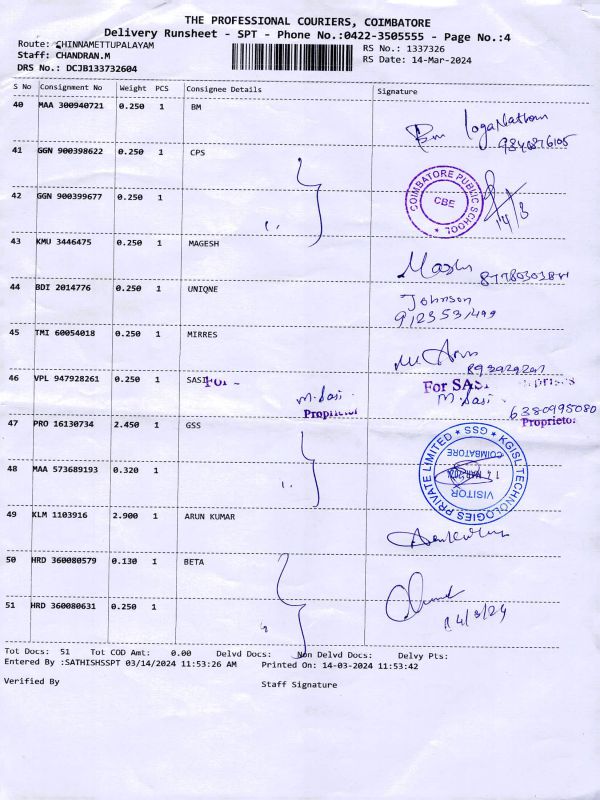 THE PROFESSIONAL COURIERS, COIMBATORE
Delivery Runsheet - SPT - Phone No.:0422-3505555 - Page No.:4
Route: CHINNAMETTUPALAYAM
RS No.: 1337326
Staff: CHANDRAN.M
RS Date: 14-Mar-2024
DRS No.: DCJB133732604
S No Consignment No Weight PCS Consignee Details Signature
40 MAA 300940721 0.250 1 BM
41 GGN 900398622 0.250 1 CPS
COIMBATORE PUBLIC SCHOOL
CBE
42 GGN 900399677 0.250 1
14/3
43 KMU 3446475 0.250 1 MAGESH
44 BDI 2014776 0.250 1 UNIQNE
Johnson
45 TMI 60054018 0.250 1 MIRRES
46 VPL 947928261 0.250 1 SASI
For SAS
M. Sasi
M. Sasi
6380995080
Proprietor
Proprietor
47 PRO 16130734 2.450 1 GSS
KGISL TECHNOLOGIES PRIVATE LIMITED * GSS *
COIMBATORE
VISITOR
48 MAA 573689193 0.320 1
49 KLM 1103916 2.900 1 ARUN KUMAR
50 HRD 360080579 0.130 1 BETA
14/3/24
51 HRD 360080631 0.250 1
Tot Docs: 51 Tot COD Amt: 0.00 Delvd Docs: Non Delvd Docs: Delvy Pts:
Entered By :SATHISHSSPT 03/14/2024 11:53:26 AM Printed On: 14-03-2024 11:53:42
Verified By Staff Signature